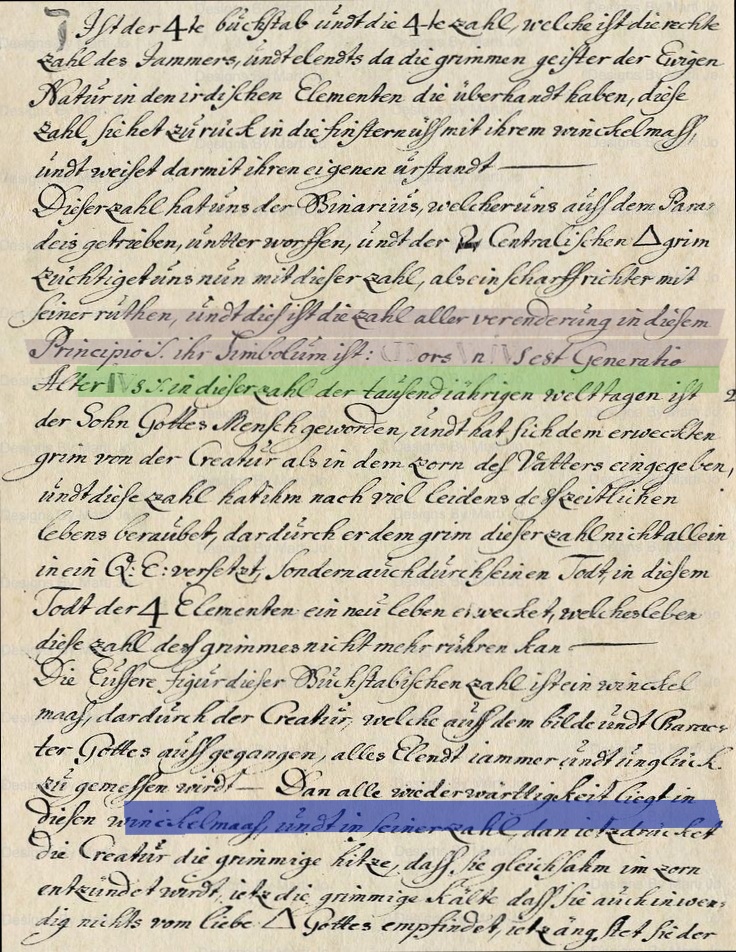 Ist der 4te büchstab ündt die 4-te zahl, welche ist die rechte
zahl des Jammers, ündt elendts da die grimmen geister der Ewigen
Natür in den irdischen Elementen die überhandt haben, diese
zahl, siehet zürück in die finsternüss mit ihrem winckelmass,
ündt weiset darmit ihren eigenen ürstandt —
Dieser zahl hat üns der Binariüs, welcher üns aüss dem Para-
deis getrieben, üntter worffen, ündt der Centralischen △ grim
züchtiget üns nün mit dieser zahl, als ein scharffrichter mit
seiner rüthen, ündt dies ist die zahl aller verenderüng in diesem
Principio ihr Simbolüm ist: ors n est Generatio
Alter in dieser zahl der taüsendiährigen welt tagen ist 2
der Sohn Gottes Mensch geworden, ündt hat sich dem erweckten
grim von der Creatür als in dem zorn dess Vatters eingegeben,
ündt diese zahl hat ihm nach viel leidens dess zeitlichen
lebens beraübet, dardürch er dem grim dieser zahl nicht allein
in ein Q: E: versetzt, sondern aüch dürch seinen Todt, in diesem
Todt der 4 Elementen ein neü leben erwecket, welches leben
diese zahl dess grimmes nicht mehr rühren kan —
Die Eüssere figür dieser Büchstabischen zahl ist ein winckel
maas, dardürch der Creatür, welche aüss dem bilde ündt Charac-
ter Gottes aüssgegangen, alles Elendt iammer ündt ünglück
zü gemessen wirdt — Dan alle wiederwärttigkeit liegt in
diesen winckelmaas, ündt in seiner zahl, dan ietz drücket
die Creatür die grimmige hitze, dass sie gleichsahm im zorn
entzündet wirdt, ietz die grimmige kälte dass sie aüch inwen-
dig nichts vom liebe △ Gottes empfindet, ietz ängstet sie der